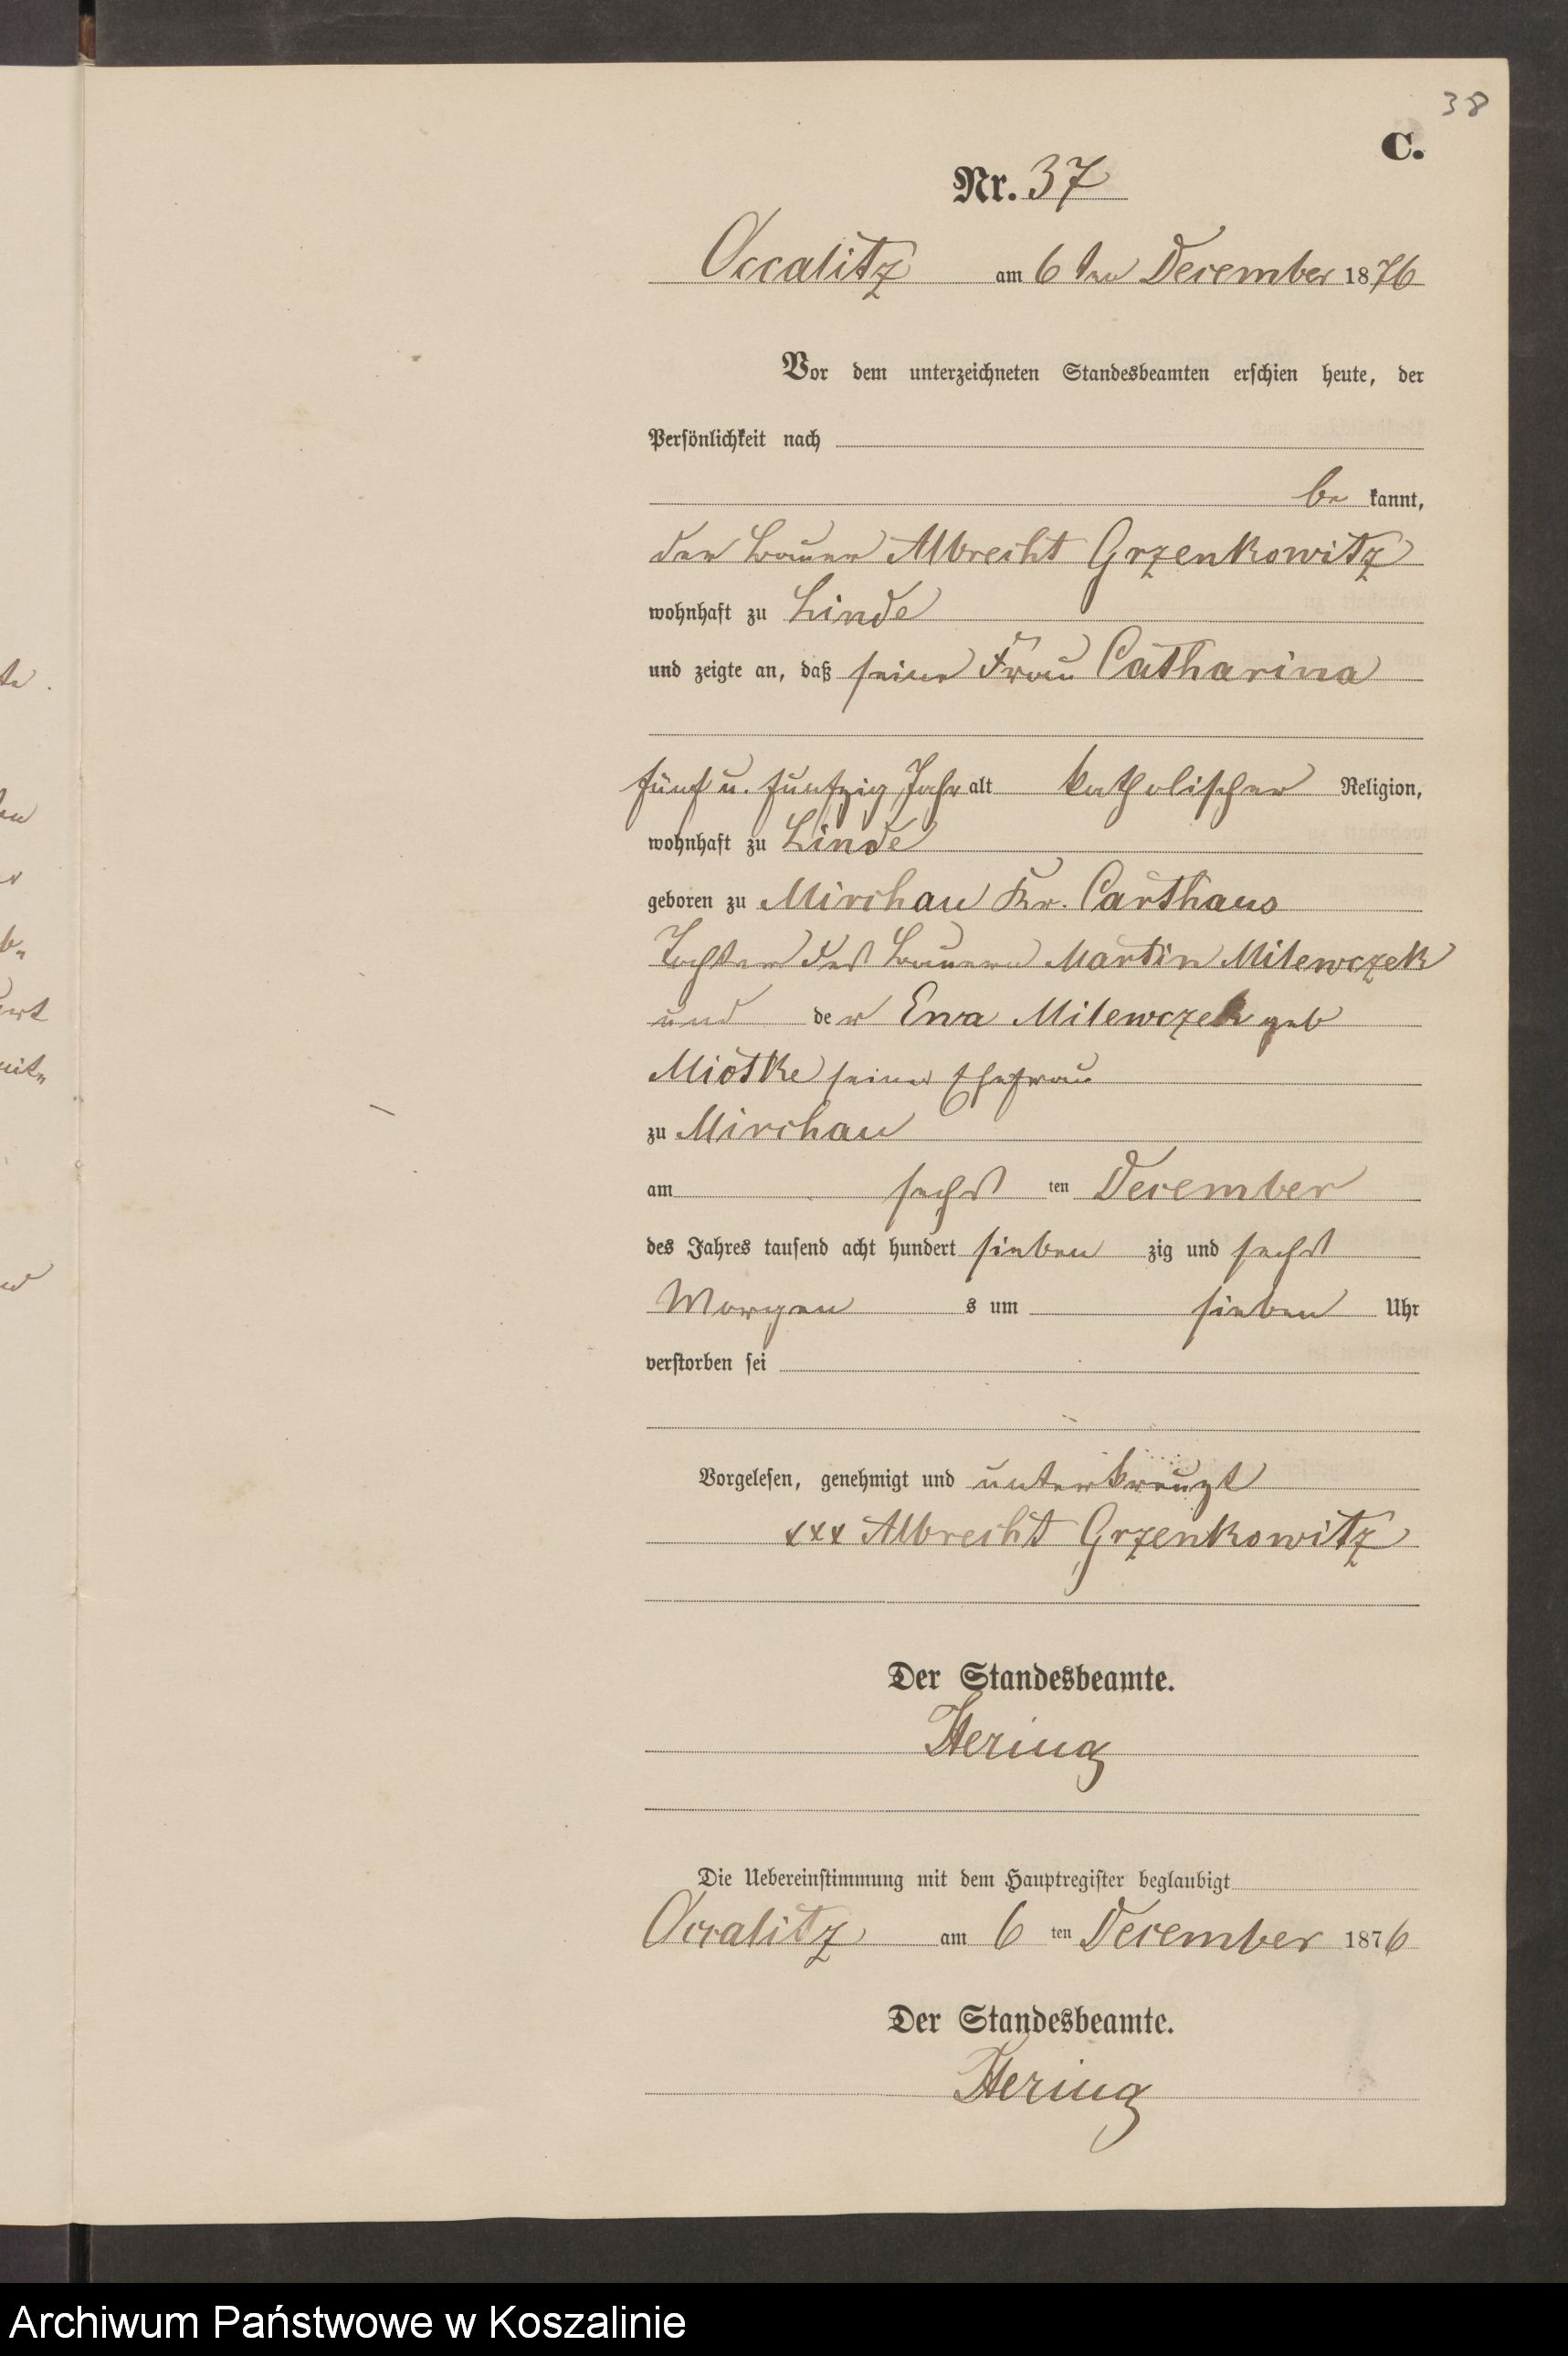 38
C.
Nr. 37
Occalitz am 6ten December 1876
Vor dem unterzeichneten Standesbeamten erschien heute, der
Persönlichkeit nach
be kannt,
der Bauer Albrecht Grzenkowitz
wohnhaft zu Linde
und zeigte an, daß seine Frau Catharina
fünf u. funfzig Jahr alt katholischer Religion,
wohnhaft zu Linde
geboren zu Mirchau Kr. Carthaus
Tochter des Bauern Martin Milewczek
und der Ewa Milewczek geb
Miotke seiner Ehefrau
zu Mirchau
am sechs ten December
des Jahres tausend acht hundert sieben zig und sechs
Morgen s um sieben Uhr
verstorben sei
Vorgelesen, genehmigt und unterkreuzt
xxx Albrecht Grzenkowitz
Der Standesbeamte.
Hering
Die Uebereinstimmung mit dem Hauptregister beglaubigt
Occalitz am 6 ten December 1876
Der Standesbeamte.
Hering
Archiwum Państwowe w Koszalinie